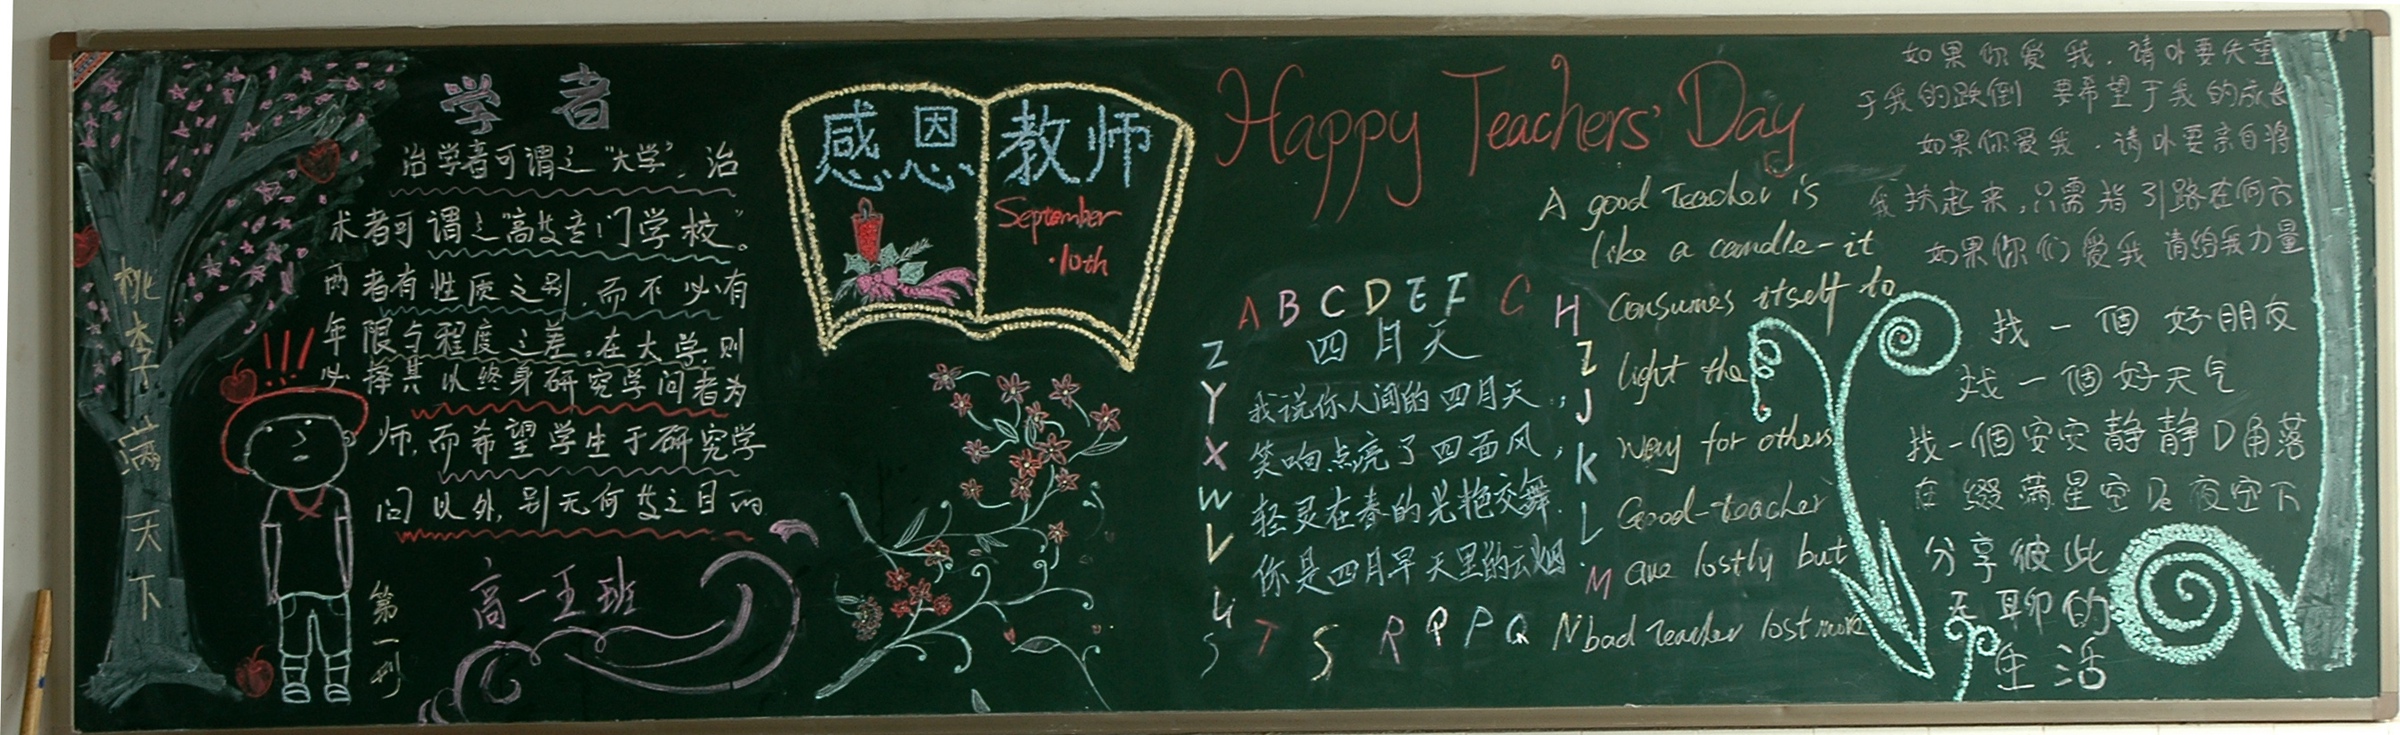 桃李满天下
学者
治学者可谓之“大学”，治
术者可谓之“高技专门学校”。
两者有性质之别，而不必有
年限与程度之差。在大学，则
必择其以终身研究学问者为
师，而希望学生于研究学
问以外，别无何技之目的
高一王班
第一刊
感恩教师
September
·10th
Happy Teachers' Day
A good Teacher is
like a candle-it
consumes itself to
light the
way for others
Good-teacher
are lostly but
bad teacher lost more
A B C D E F C H
Z J K L M N
Z Y X W V U S
T S R Q P Q
四月天
我说你人间的四月天，
笑响点亮了四面风，
轻灵在春的光艳交舞.
你是四月早天里的云烟.
如果你爱我，请小要失望
于我的跌倒 要希望于我的成长
如果你爱我，请小要亲自将
我扶起来，只需指引路在何方
如果你们爱我 请给我力量
找一個好朋友
找一個好天气
找一個安安静静D角落
在缀满星空De夜空下
分享彼此
无聊的
生活